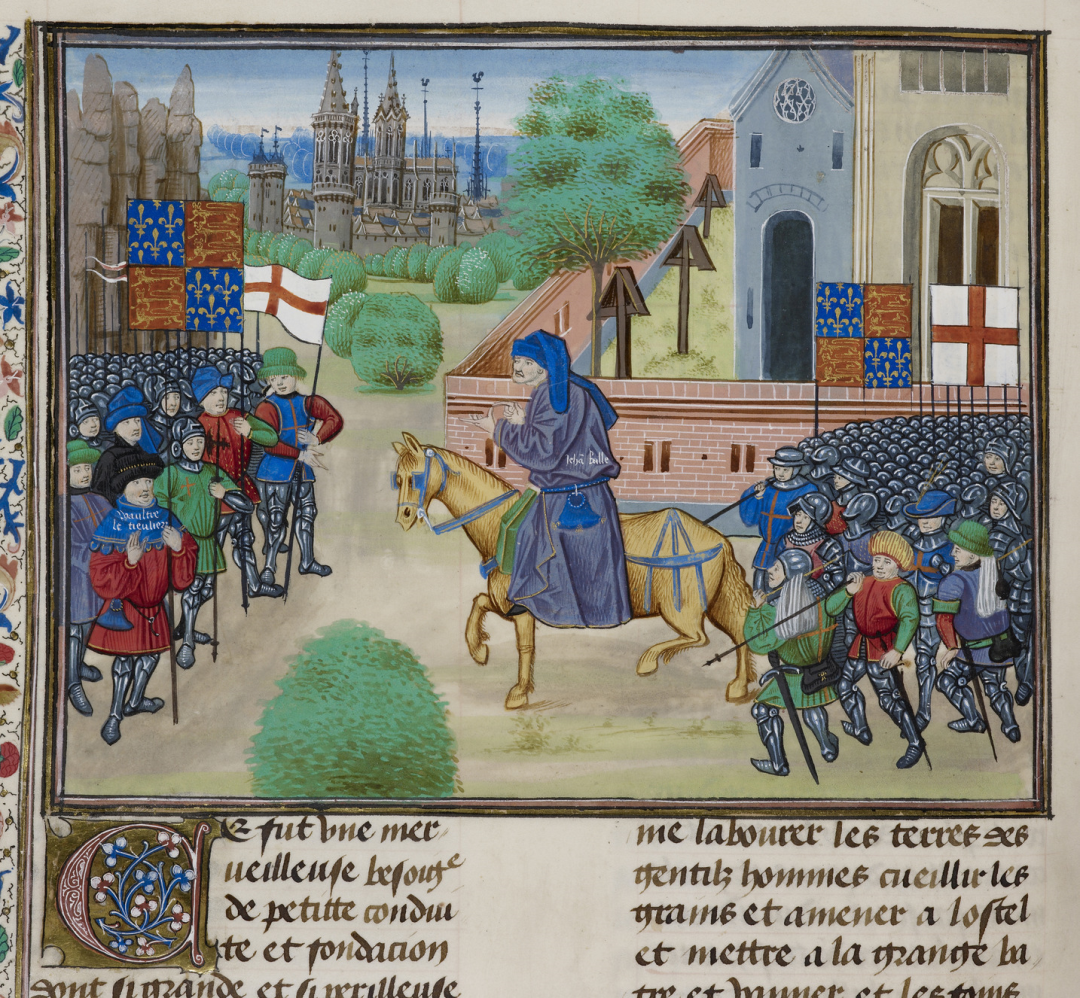 Jehã balle
Waultre
le tieulier
CE fut vne mer
ueilleuse besoige
de petitte condui
te et fondacion
dont si grande et si perilleuse
me labourer les terres des
gentilz hommes cueillir les
grains et amener a lostel
et mettre a la grange ba
tre et vanner et les